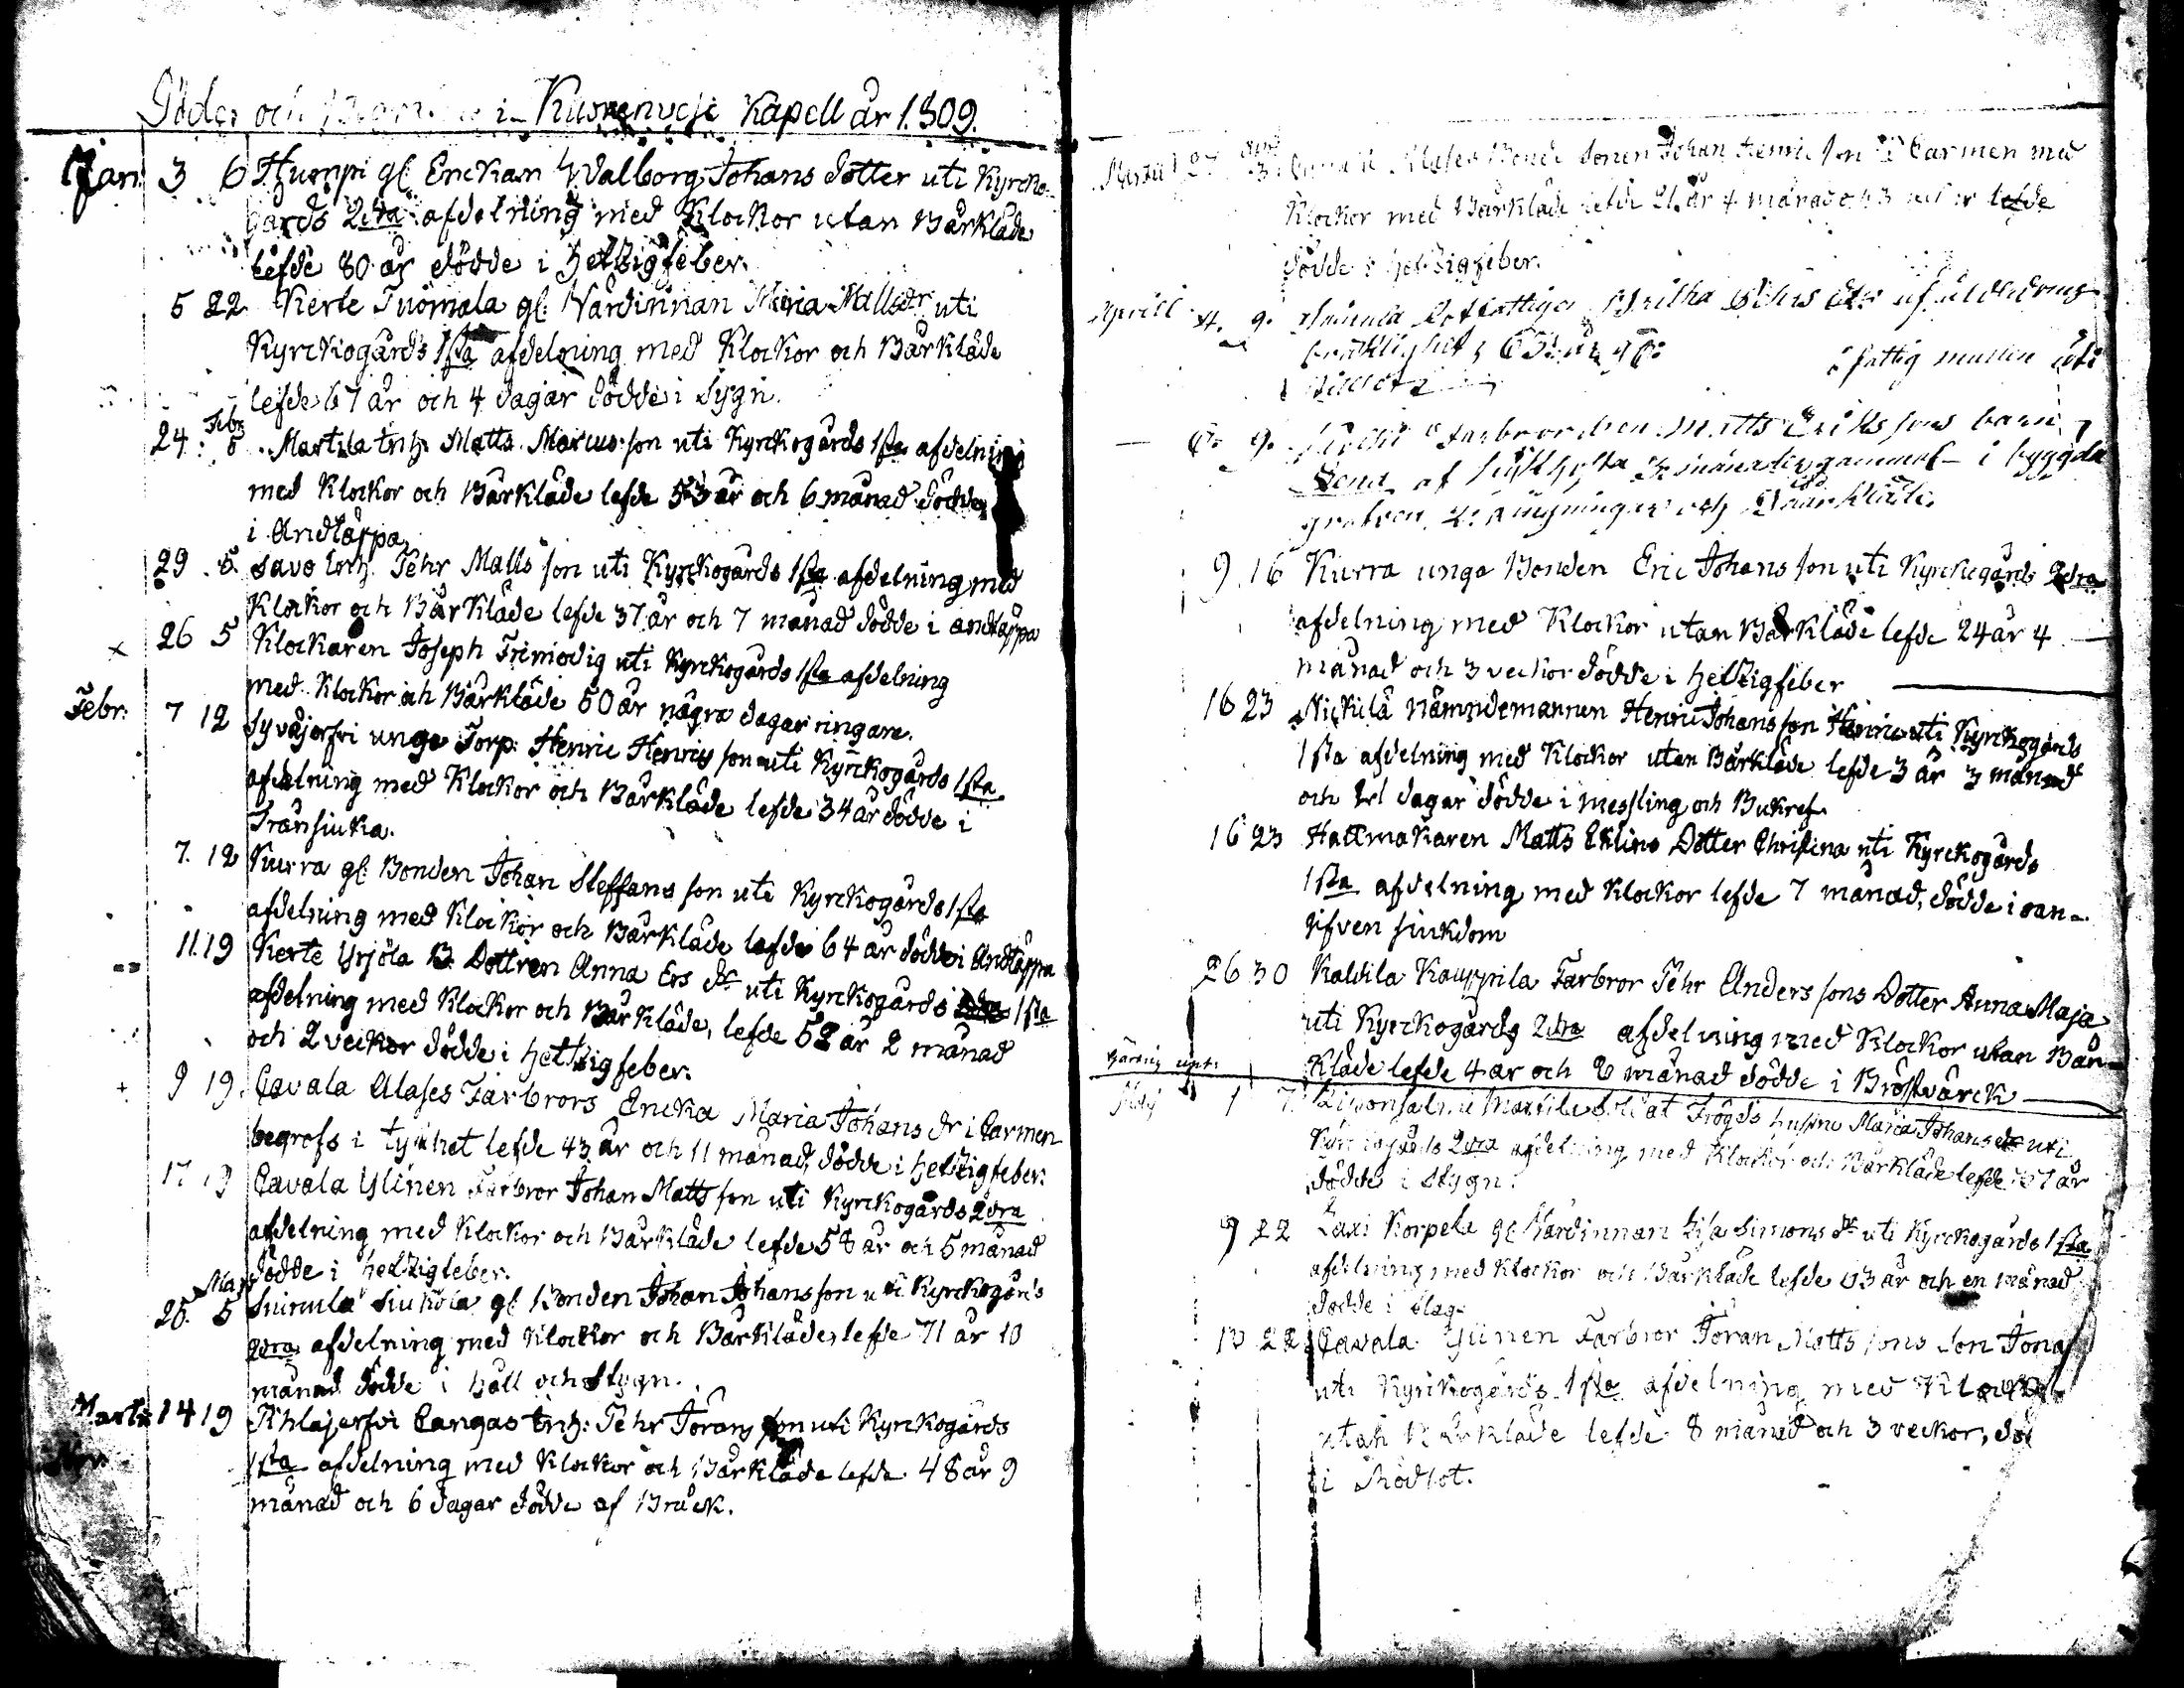 Döder och i Kuorenvesi Kapell år 1809.
Jan: 3 6 Humpi gl. Enckan Walborg Johans dotter uti Kyrcko-
gårds 2dra afdelning med Klockor utan Bårkläde
lefde 80 år dödde i hetzigfeber.
5 22 Kerte Tuomala gl: Värdinnan Maria Matts dr uti
Kyrckiogårds 1sta afdelning med Klockor och Bårkläde
lefde 67 år och 4 dagar dödde i Sygn.
Febr
24. 5 Martila Inh. Matts Marcus son uti Kyrckogårds 1sta afdelning
med Klockor och Bårkläde lefde 53 år och 6 månad dödde
i Andtäppa
29 5. Savo Inh. Pehr Matts son uti Kyrckogårds 1sta afdelning med
Klockor och Bårkläde lefde 37 år och 7 månad dödde i andtäppa
26 5 Klockaren Joseph Frimodig uti Kyrckogårds 1sta afdelning
med Klockor och Bårkläde 50 år några dagar ringare.
Febr: 7 12 Syväjerfvi unge Torp: Henric Henrics son uti Kyrckogårds 1sta
afdelning med Klockor och Bårkläde lefde 34 år dödde i
Transiuka.
7. 12 Kurra gl: Bonden Johan Steffans son uti Kyrckogårds 1sta
afdelning med Klockor och Bårkläde lefde 64 år dödde i Andtäppa
11. 19 Kerte Yrjölä B. Dottren Anna Ers dr uti Kyrckogårds 1sta
afdelning med Klockor och Bårkläde, lefde 52 år 2 månad
och 2 veckor dödde i hetzigfeber.
9 19. Lavala Alases Farbrors Encka Maria Johans dr i Carmen
begrofs i tysthet lefde 43 år och 11 månad, dödde i hetzigfeber.
17 19 Lavala Ylinen Farbror Johan Matts son uti Kyrckogårds 2dra
afdelning med Klockor och Bårkläde lefde 58 år och 5 månad
dödde i hetzigfeber.
Mart
25. 5 Suinula Siukola gl Bonden Johan Johans son uti Kyrckogårds
2dra afdelning med Klockor och Bårkläde, lefde 71 år 10
månad dödde i håll och Stygn.
Marti: 14 19 Pihlajerfvi Cangas Inh: Pehr Jörans son uti Kyrckogårds
1sta afdelning med Klockor och Bårkläde lefde 48 år 9
månad och 6 dagar dödde af Bråck.
Martii 27 3 Alases Bonde sonen Johan Henric son i Carmen med
Klockor med Bårkläde lefde 21 år 4 månad och 3 lefde
dödde i hetzigfeber.
Aprill 4. 9. Suinula Rotfattiga af ålderdoms
bräcklighet
6. 9. Farbrorsken Matts Eriks sons barn
af 2 månader gammal i byggda
grafven, ringningar och Bårkläde.
9. 16 Kurra unge Bonden Eric Johans son uti Kyrckogårds 2dra
afdelning med Klockor utan Bårkläde lefde 24 år 4
månad och 3 veckor dödde i hetzigfeber
16 23 Nickilä Nämndemannen Henric Johans son Henric uti Kyrckogårds
1sta afdelning med Klockor utan Bårkläde lefde 3 år 3 månad
och dagar dödde i messling och Bukref.
16 23 Hattmakaren Matts Eklins Dotter Christina uti Kyrckogårds
1sta afdelning med Klockor lefde 7 månad, dödde i oan-
gifven siukdom
26 30 Kaldila Kauppila Farbror Pehr Anders sons Dotter Anna Maja
uti Kyrckogårds 2dra afdelning med Klockor utan Bår-
kläde lefde 4 år och 8 månad dödde i Bröstvärck
Maij 1 7. Soldat Frögds hustru Maria Johans dr uti
Kyrckogårds 2dra afdelning med Klockor och Bårkläde lefde 57 år
dödde i Stygn.
9 22 Laxi Korpela gl Värdinnan Lisa Simons dr uti Kyrckogårds 1sta
afdelning med Klockor och Bårkläde lefde 63 år och en månad
dödde i slag.
13 22 Lavala Ylinen Farbror Jöran Matts sons Son Jonas
uti Kyrckogårds 1sta afdelning med Klockor
utan Bårkläde lefde 8 månad och 3 veckor, död
i Rödsot.